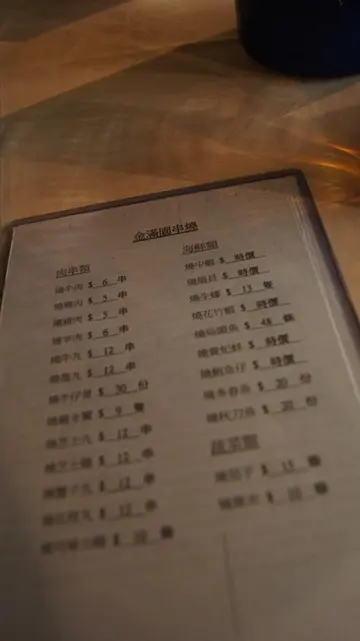 金滿園串燒
肉串類
燒牛肉 $ 6 串
燒雞肉 $ 5 串
燒豬肉 $ 5 串
燒羊肉 $ 6 串
燒牛丸 $ 12 串
$ 12 串
燒牛仔骨 $ 30 份
$ 9 隻
燒芝士丸 $ 12 串
燒芝士腸 $ 12 串
燒蟹子丸 $ 12 串
$ 12 串
海鮮類
燒中蝦 $ 時價
燒扇貝 $ 時價
燒生蠔 $ 13 隻
燒花竹蝦 $ 時價
$ 48 條
燒貴妃蚌 $ 時價
燒鮑魚仔 $ 時價
燒多春魚 $ 20 份
燒秋刀魚 $ 20 份
蔬菜類
燒茄子 $ 15